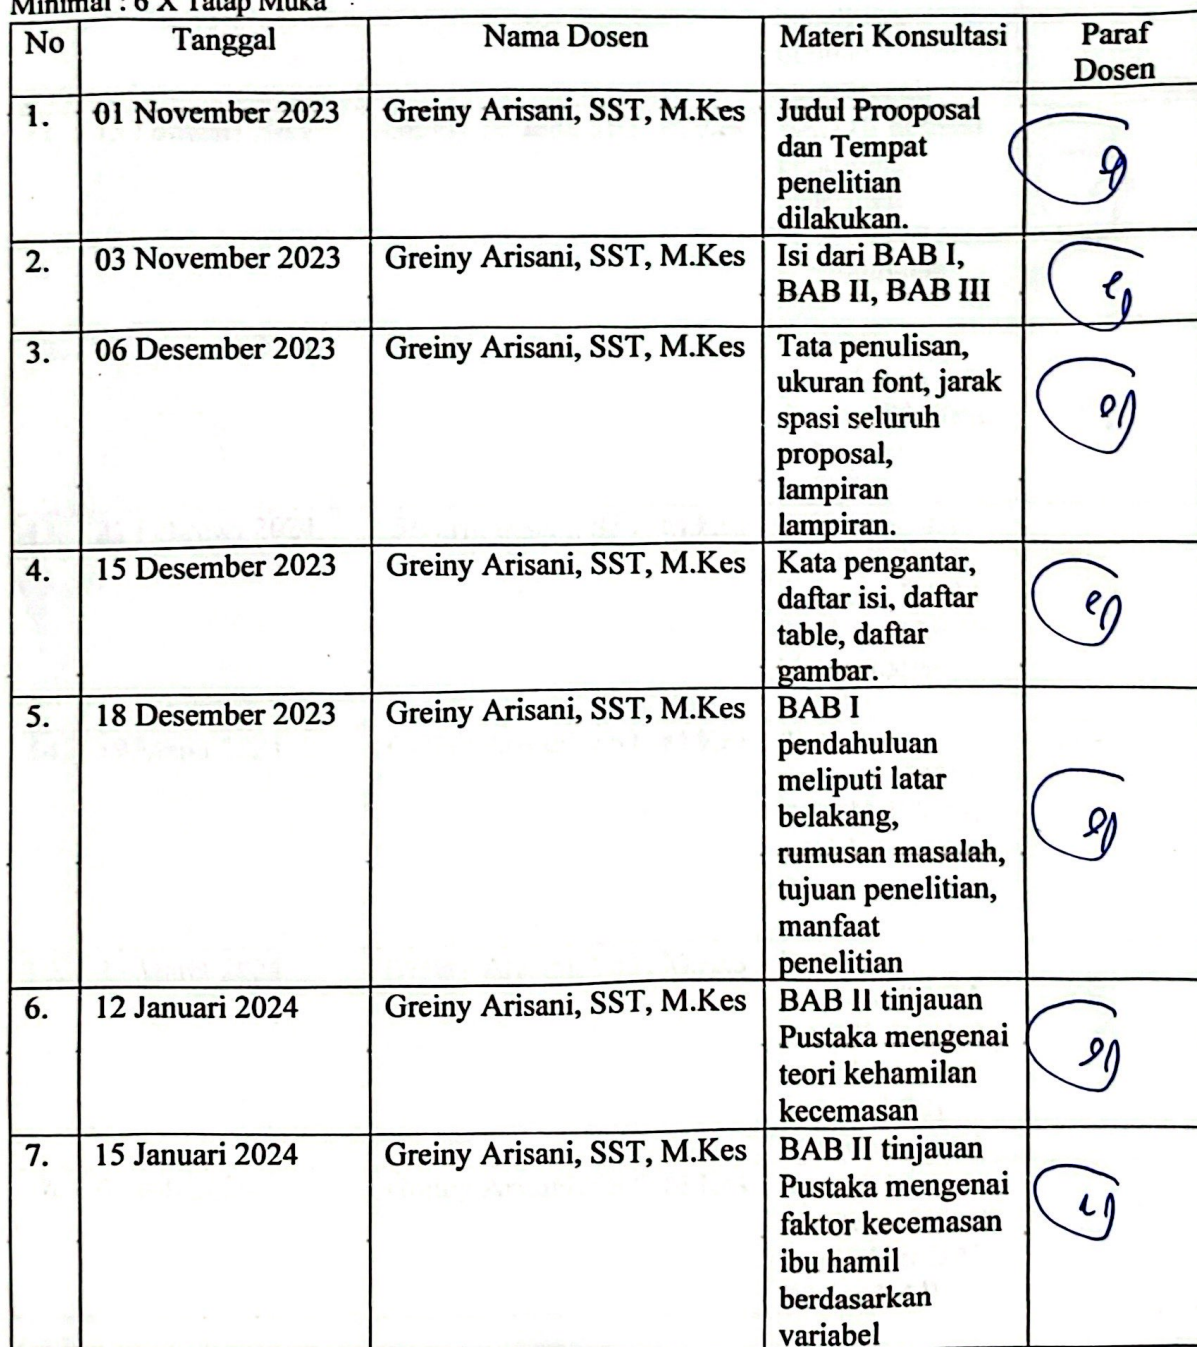 Minimal : 6 X Tatap Muka
No Tanggal Nama Dosen Materi Konsultasi Paraf
Dosen
1. 01 November 2023 Greiny Arisani, SST, M.Kes Judul Prooposal
dan Tempat
penelitian
dilakukan.
2. 03 November 2023 Greiny Arisani, SST, M.Kes Isi dari BAB I,
BAB II, BAB III
3. 06 Desember 2023 Greiny Arisani, SST, M.Kes Tata penulisan,
ukuran font, jarak
spasi seluruh
proposal,
lampiran
lampiran.
4. 15 Desember 2023 Greiny Arisani, SST, M.Kes Kata pengantar,
daftar isi, daftar
table, daftar
gambar.
5. 18 Desember 2023 Greiny Arisani, SST, M.Kes BAB I
pendahuluan
meliputi latar
belakang,
rumusan masalah,
tujuan penelitian,
manfaat
penelitian
6. 12 Januari 2024 Greiny Arisani, SST, M.Kes BAB II tinjauan
Pustaka mengenai
teori kehamilan
kecemasan
7. 15 Januari 2024 Greiny Arisani, SST, M.Kes BAB II tinjauan
Pustaka mengenai
faktor kecemasan
ibu hamil
berdasarkan
variabel